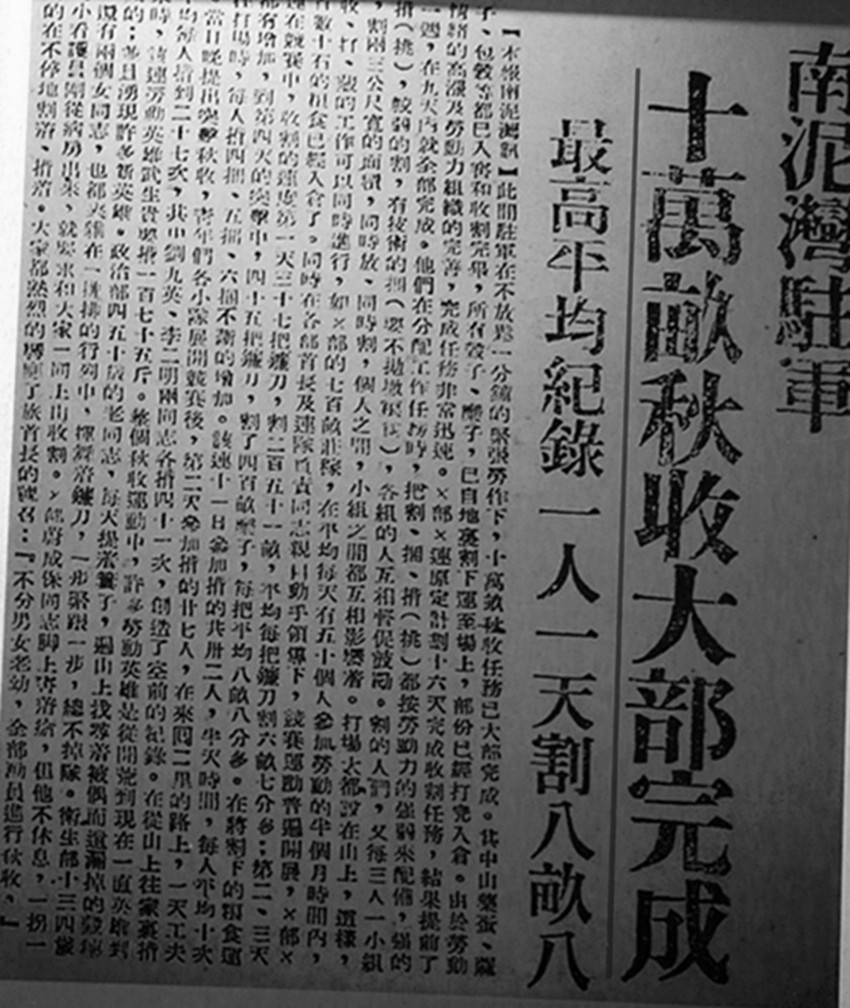 南泥灣駐軍
十萬畝秋收大部完成
最高平均紀錄一人一天割八畝八
【本報南泥灣訊】此間駐軍在不放鬆一分鐘的緊張勞作下，十萬畝秋收任務已大部完成。其中山藥蛋、蘿
子、包穀等都已入窖和收割完畢，所有穀子、糜子，已自地裏割下運至場上，部份已經打完入倉。由於勞動
情緒的高漲及勞動力組織的完善，完成任務非常迅速。×部×連原定計劃十六天完成收割任務，結果提前了
一週，在九天內就全部完成。他們在分配工作任務時，把割、捆、揹（挑）都按勞動力的强弱來配備，强的
揹（挑），較弱的割，有技術的捆（ ），各組的人互相督促鼓勵。割的人們，又每三人一小組
，割兩三公尺寬的面積，同時放、同時割，個人之間，小組之間都互相影響着。打場大都設在山上，這樣，
收、打、 的工作可以同時進行，如×部的七百畝莊稼，在平均每天有五十個人參加勞動的半個月時間內，
數十石的粮食已經入倉了。同時在各部首長及連隊負責同志親自動手領導下，競賽運動普遍開展，×部×
連在競賽中，收割的速度第一天三十七把鐮刀，割二百五十一畝，平均每把鐮刀割六畝七分多；第二、三天
都有增加，到第四天的突擊中，四十五把鐮刀，割了四百畝糜子，每把平均八畝八分多。在將割下的粮食運
往打場時，每人揹四捆、五捆、六捆不斷的增加。該連十一日參加揹的共卅二人，半天時間，每人平均十次
。當日晚提出突擊秋收，青年們各小隊展開競賽後，第二天參加揹的廿七人，在來回二里的路上，一天工夫
平均每人揹到二十七次，其中劉九英、李二明兩同志各揹四十一次，創造了空前的紀錄。在從山上往家裏揹
時，該連勞動英雄武生貴要揹一百七十五斤。整個秋收運動中，許多勞動英雄是從開荒到現在一直英雄到
的；並且湧現許多新英雄。政治部四五十歲的老同志，每天提着籃子，遍山上找尋着被偶而遺漏掉的
還有兩個女同志，也都夾雜在一 的行列中，揮舞着鐮刀，一步緊跟一步，總不掉隊。衛生部十三四歲
小看護員剛從病房出來，就要求和大家一同上山收割。× 成保同志脚上 着瘡，但他不休息，一拐一
的在不停地割着、揹着。大家都熱烈的響應了旅首長的號召：『不分男女老幼，全部動員進行秋收。』